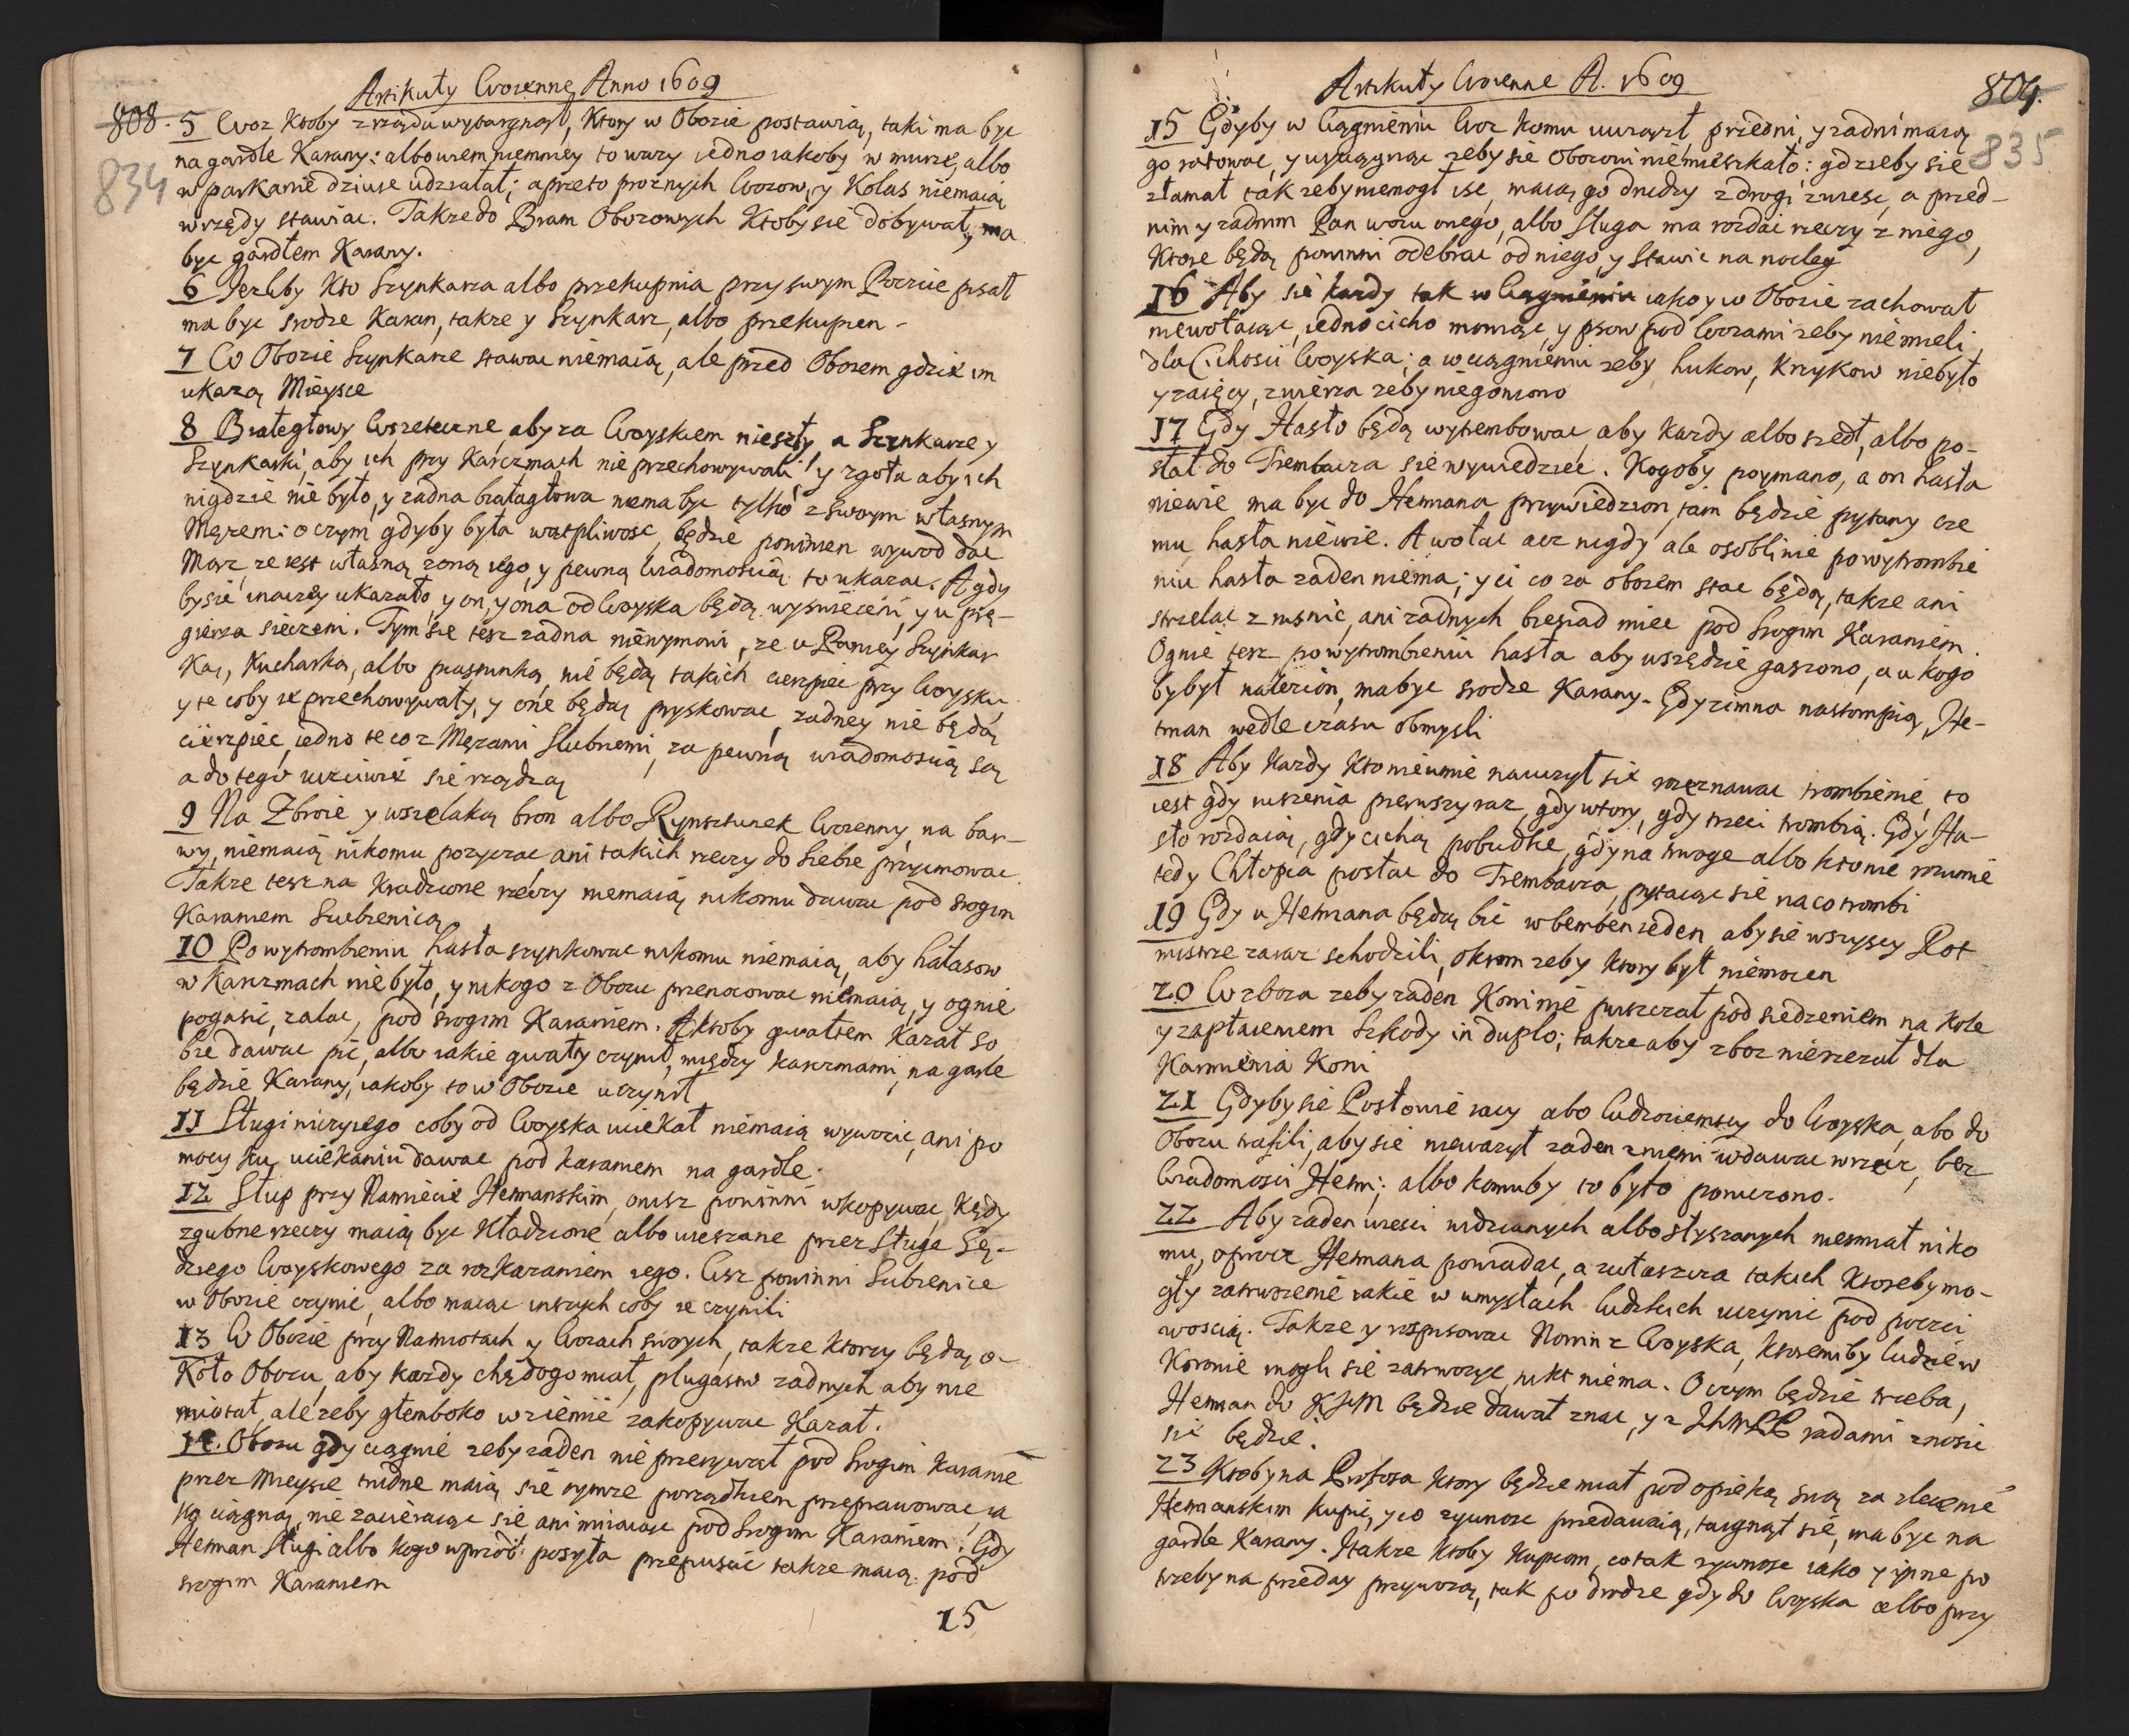 Artikuły Woienne Anno 1609
808.
834
5 Woz ktoby z rządu wytargnął, ktory w Obozie postawią, taki ma byc
na gardle karany: albowiem niemniey to wazy iedno iakoby w murze, albo
w parkanie dziure udziałał; a preto proznych Wozow, y Kolas niemaią
w rzędy stawiac. Takze do Bram Obozowych ktoby sie dobywał, ma
byc gardłem karany.
6 Jezliby kto Szynkarza albo przekupnia przy swym Poczcie pisał
ma byc srodze karan, takze y Szynkarz, albo przekupien.
7 W Obozie Szynkarze stawac niemaią, ale przed Obozem gdzie im
ukazą Mieysce
8 Białegłowy Wszeteczne, aby za Woyskiem nieszły a Szynkarze y
Szynkarki, aby ich przy karczmach nie przechowywali: y zgoła aby ich
nigdzie nie było, y zadna białagłowa niema byc tylko z swoym własnym
Męzem: o czym gdyby była wątpliwosc, będzie powinien wywod dac
Mąz, ze iest własną zoną iego, y pewną wiadomoscią to ukazac. A gdy
by sie inaczey ukazało, y on, y ona od Woyska będą wyswieceni, y u prę-
gierza sieczeni. Tym sie tesz zadna niewymowi, ze u Paniey Szynkar
ką, Kucharką, albo piastunką, nie będą takich cierpiec przy Woysku
y te coby ie przechowywały, y one będą pryskowac, zadney nie będą
cierpiec, iedno te co z Męzami slubnemi, za pewną wiadomoscią są
a do tego uczciwie sie rządzą
9 Na Zbroie y wszelaką bron albo Rynsztunek Woienny, na bar-
wy, niemaią nikomu pozyczac ani takich rzeczy do siebie przyimowac
Takze tesz na kradzione rzeczy niemaią nikomu dawac pod srogim
karaniem Szubienicą
10 Po wytrombieniu hasła szynkowac nikomu niemaią, aby hałasow
w karczmach nie było, y nikogo z Obozu przenocowac niemaią, y ognie
pogasic, zalac, pod srogim karaniem. A ktoby gwałtem kazał so
bie dawac pic, albo iakie gwałty czynił, między karczmami, na gardle
będzie karany, iakoby to w Obozie uczynił
11 Sługi niczyiego coby od Woyska uciekał niemaią wywozic, ani po
mocy ku uciekaniu dawac pod karaniem na gardle.
12 Słup przy Namiecie Hetmanskim, onisz powinni wkopywac, kędy
zgubne rzeczy maią byc kładzione albo wieszane przez Sługe Sę-
dziego Woyskowego za roskazaniem iego. Cisz powinni Subienice
w Obozie czynic, albo miec inszych coby ie czynili
13 W Obozie przy Namiotach y Wozach swoych, takze ktorzy będą o-
koło Obozu, aby kazdy chędogo miał, plugastw zadnych aby nie
miotał, ale zeby głemboko w ziemie zakopywac kazał.
14. Obozu gdy ciągnie zeby zaden nie przerywał pod srogim karanie
przez mieysce trudne maią sie tymze porządkiem przeprawowac, ia
ko ciągną, nie zawieraiąc sie ani miiaiąc pod srogim karaniem. Gdy
Hetman Sługi albo kogo wprzod posyła prepuscic takze maią pod
srogim karaniem
15
Artikuły Woienne A. 1609
804.
835
15 Gdyby w Ciągnieniu Woz komu uwiązł, przedni, y zadni maią
go ratowac, y wyciągnąc zeby sie Obozowi niemieszkało: gdzieby sie
złamał tak zeby niemogł isc, maią go drudzy z drogi zwiesc, a przed-
nim y zadnim Pan wozu onego, albo Sługa ma rozdac rzeczy z niego,
ktore będą powinni odebrac od niego y stawic na nocleg
16 Aby sie kazdy tak w Ciągnieniu iako y w Obozie zachował
niewołaiąc, iedno cicho mowiąc, y psow pod Wozami zeby niemieli
dla Cichosci Woyska; a w ciągnieniu zeby hukow, krzykow niebyło
y zaięcy, zwierza zeby niegoniono
17 Gdy Hasło będą wytrembowac, aby kazdy albo szedł, albo po-
słał do Trembacza sie wywiedziec. Kogoby poymano, a on hasła
niewie ma byc do Hetmana przywiedzion, tam będzie pytany cze
mu hasła niewie. A wołac acz nigdy, ale osobliwie po wytrombie
niu hasła zaden niema; y ci co za obozem stac będą, takze ani
strzelac z rusnic, ani zadnych biesiad miec pod srogim karaniem.
Ognie tesz po wytrombieniu hasła aby wszędzie gaszono, a u kogo
by był nalezion, ma byc srodze karany. Gdy zimna nastompią, He-
tman wedle czasu obmysli
18 Aby kazdy kto nieumie nauczył sie rozeznawac trombienie, to
iest gdy ruszenia pierwszy raz, gdy wtory, gdy trzeci trombią. Gdy Ha-
sło rozdaią, gdy cichą pobudke, gdy na trwoge albo kto nie rozumie
tedy Chłopca posłac do Trembacza, pytaiąc sie na co trombi
19 Gdy u Hetmana będą bic w bemben ieden, aby sie wszyscy Rot
mistrze zaraz schodzili, okrom zeby ktory był niemocen
20 W zboza zeby zaden koni nie puszczał pod siedzeniem na kole
y zapłaceniem szkody in duplo; takze aby zboz nierzezał dla
karmienia koni
21 Gdyby sie Posłowie iacy abo Cudzoziemcy do Woyska, abo do
Obozu trafili, aby sie niewazył zaden z niemi wdawac w rzecz, bez
wiadomosci Hetm: albo komuby to było poruczono.
22 Aby zaden wiesci widzianych albo słyszanych niesmiał niko
mu, oprocz Hetmana powiadac, a zwłaszcza takich ktoreby mo-
gły zatrwozenie iakie w umysłach ludzkich uczynic pod poczci
woscią. Takze y rospisowac Nowin z Woyska, ktoremiby ludzie w
Koronie mogli sie zatrwozyc, nikt niema. O czym będzie trzeba,
Hetman do KJeM będzie dawał znac, y z IchMPP radami znosic
sie będzie.
23 Ktoby na Profosa ktory będzie miał pod opieką swą za zleceniem
Hetmanskim kupie, y co zywnosc przedawaią, targnął sie, ma byc na
gardle karany. Itakze ktoby kupcom, co tak zywnosc iako y inne po
trzeby na przeday przywozą, tak po drodze gdy do Woyska albo przy